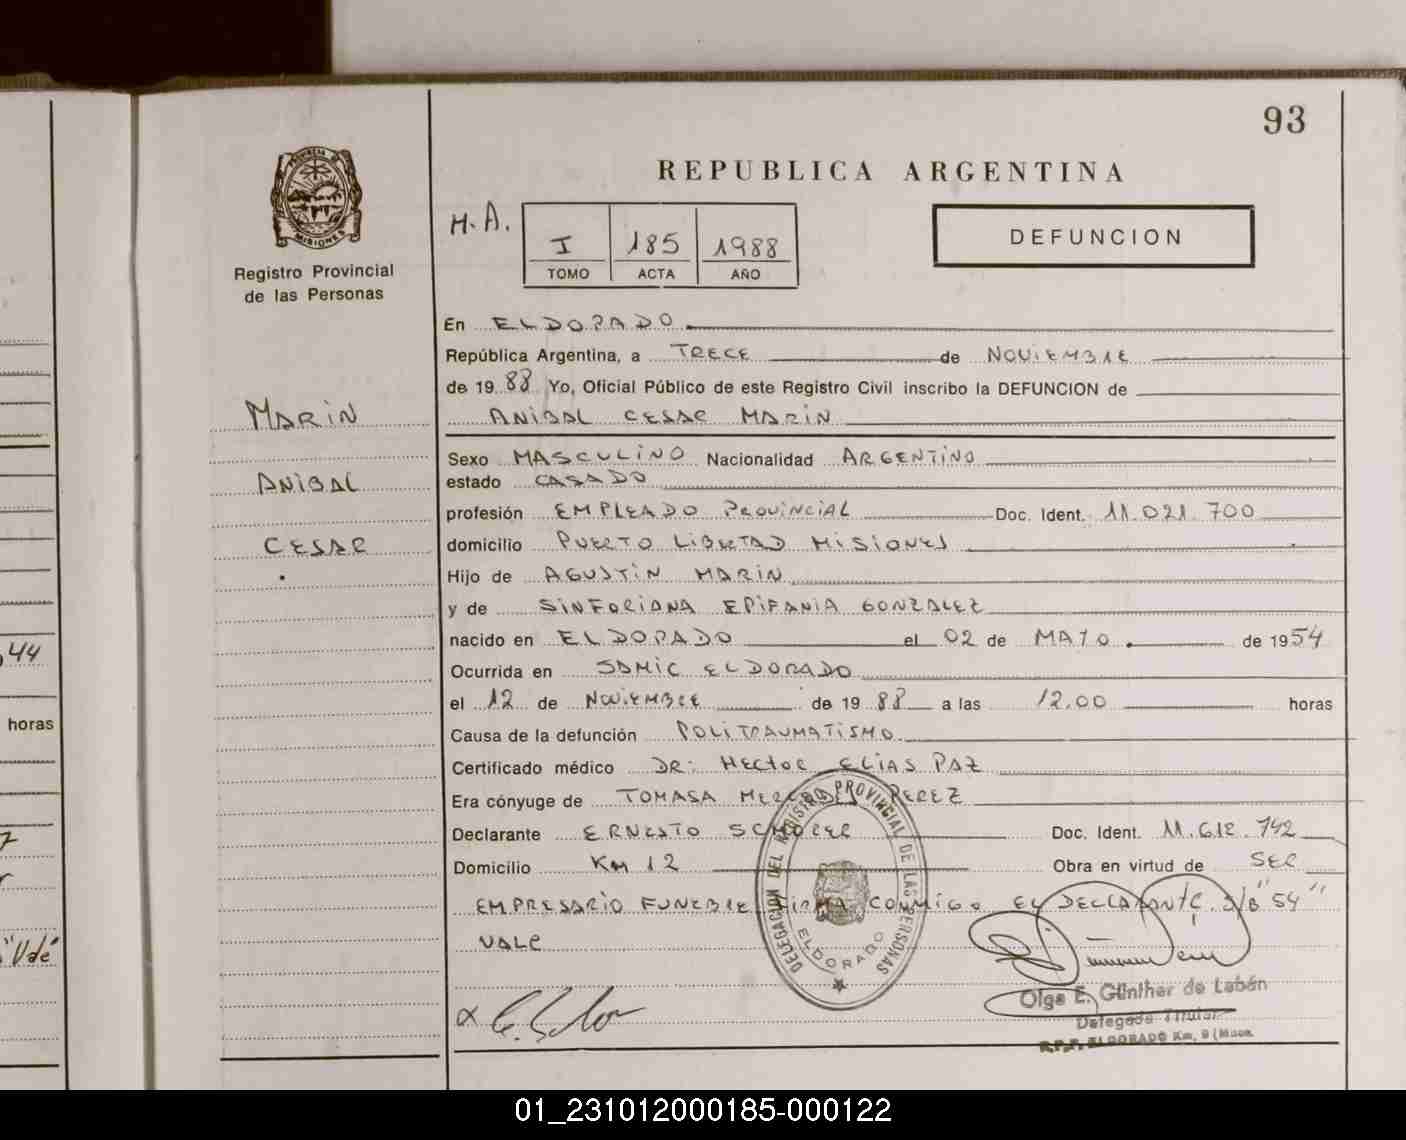 93
REPUBLICA ARGENTINA
PROVINCIA DE MISIONES
Registro Provincial
de las Personas
H.A.
I 185 1988
TOMO ACTA AÑO
DEFUNCION
En ELDORADO
República Argentina, a TRECE de NOVIEMBRE
de 19 88 Yo, Oficial Público de este Registro Civil inscribo la DEFUNCION de
ANIBAL CESAR MARIN
MARIN
ANIBAL
CESAR
Sexo MASCULINO Nacionalidad ARGENTINO
estado CASADO
profesión EMPLEADO PROVINCIAL Doc. Ident. 11.021.700
domicilio PUERTO LIBERTAD MISIONES
Hijo de AGUSTIN MARIN
y de SINFORIANA EPIFANIA GONZALEZ
nacido en ELDORADO el 02 de MAYO de 1954
Ocurrida en SAMIC ELDORADO
el 12 de NOVIEMBRE de 19 88 a las 12.00 horas
Causa de la defunción POLITRAUMATISMO
Certificado médico DR: HECTOR ELIAS PAZ
Era cónyuge de TOMASA MERCEDES PEREZ
Declarante ERNESTO SCHORER Doc. Ident. 11.612.742
Domicilio Km 12 Obra en virtud de SER
EMPRESARIO FUNEBRE FIRMA CONMIGO EL DECLARANTE. S/B "54"
VALE
DELEGACION DEL REGISTRO PROVINCIAL DE LAS PERSONAS
ELDORADO
Olga E. Günther de Labán
Delegada Titular
R.P.P. ELDORADO Km. 9 (Mnes.
44
horas
"Vale"
01_231012000185-000122